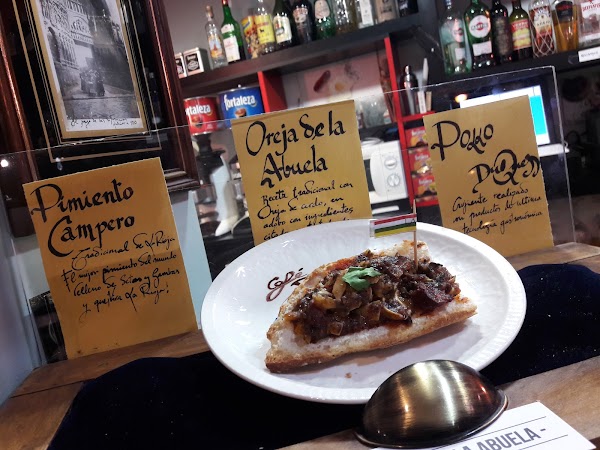 Pimiento
Campero
Tradicional de La Rioja
El mejor pimiento del mundo
relleno de setas y gambas
y que viva La Rioja!
Oreja de la
Abuela
Receta tradicional con
oreja de cerdo, en
adobo con ingredientes
Pollo
Crujiente realizado
con productos de última
tecnología gastronómica
FORTALEZA
FORTALEZA
Café
LA ABUELA -